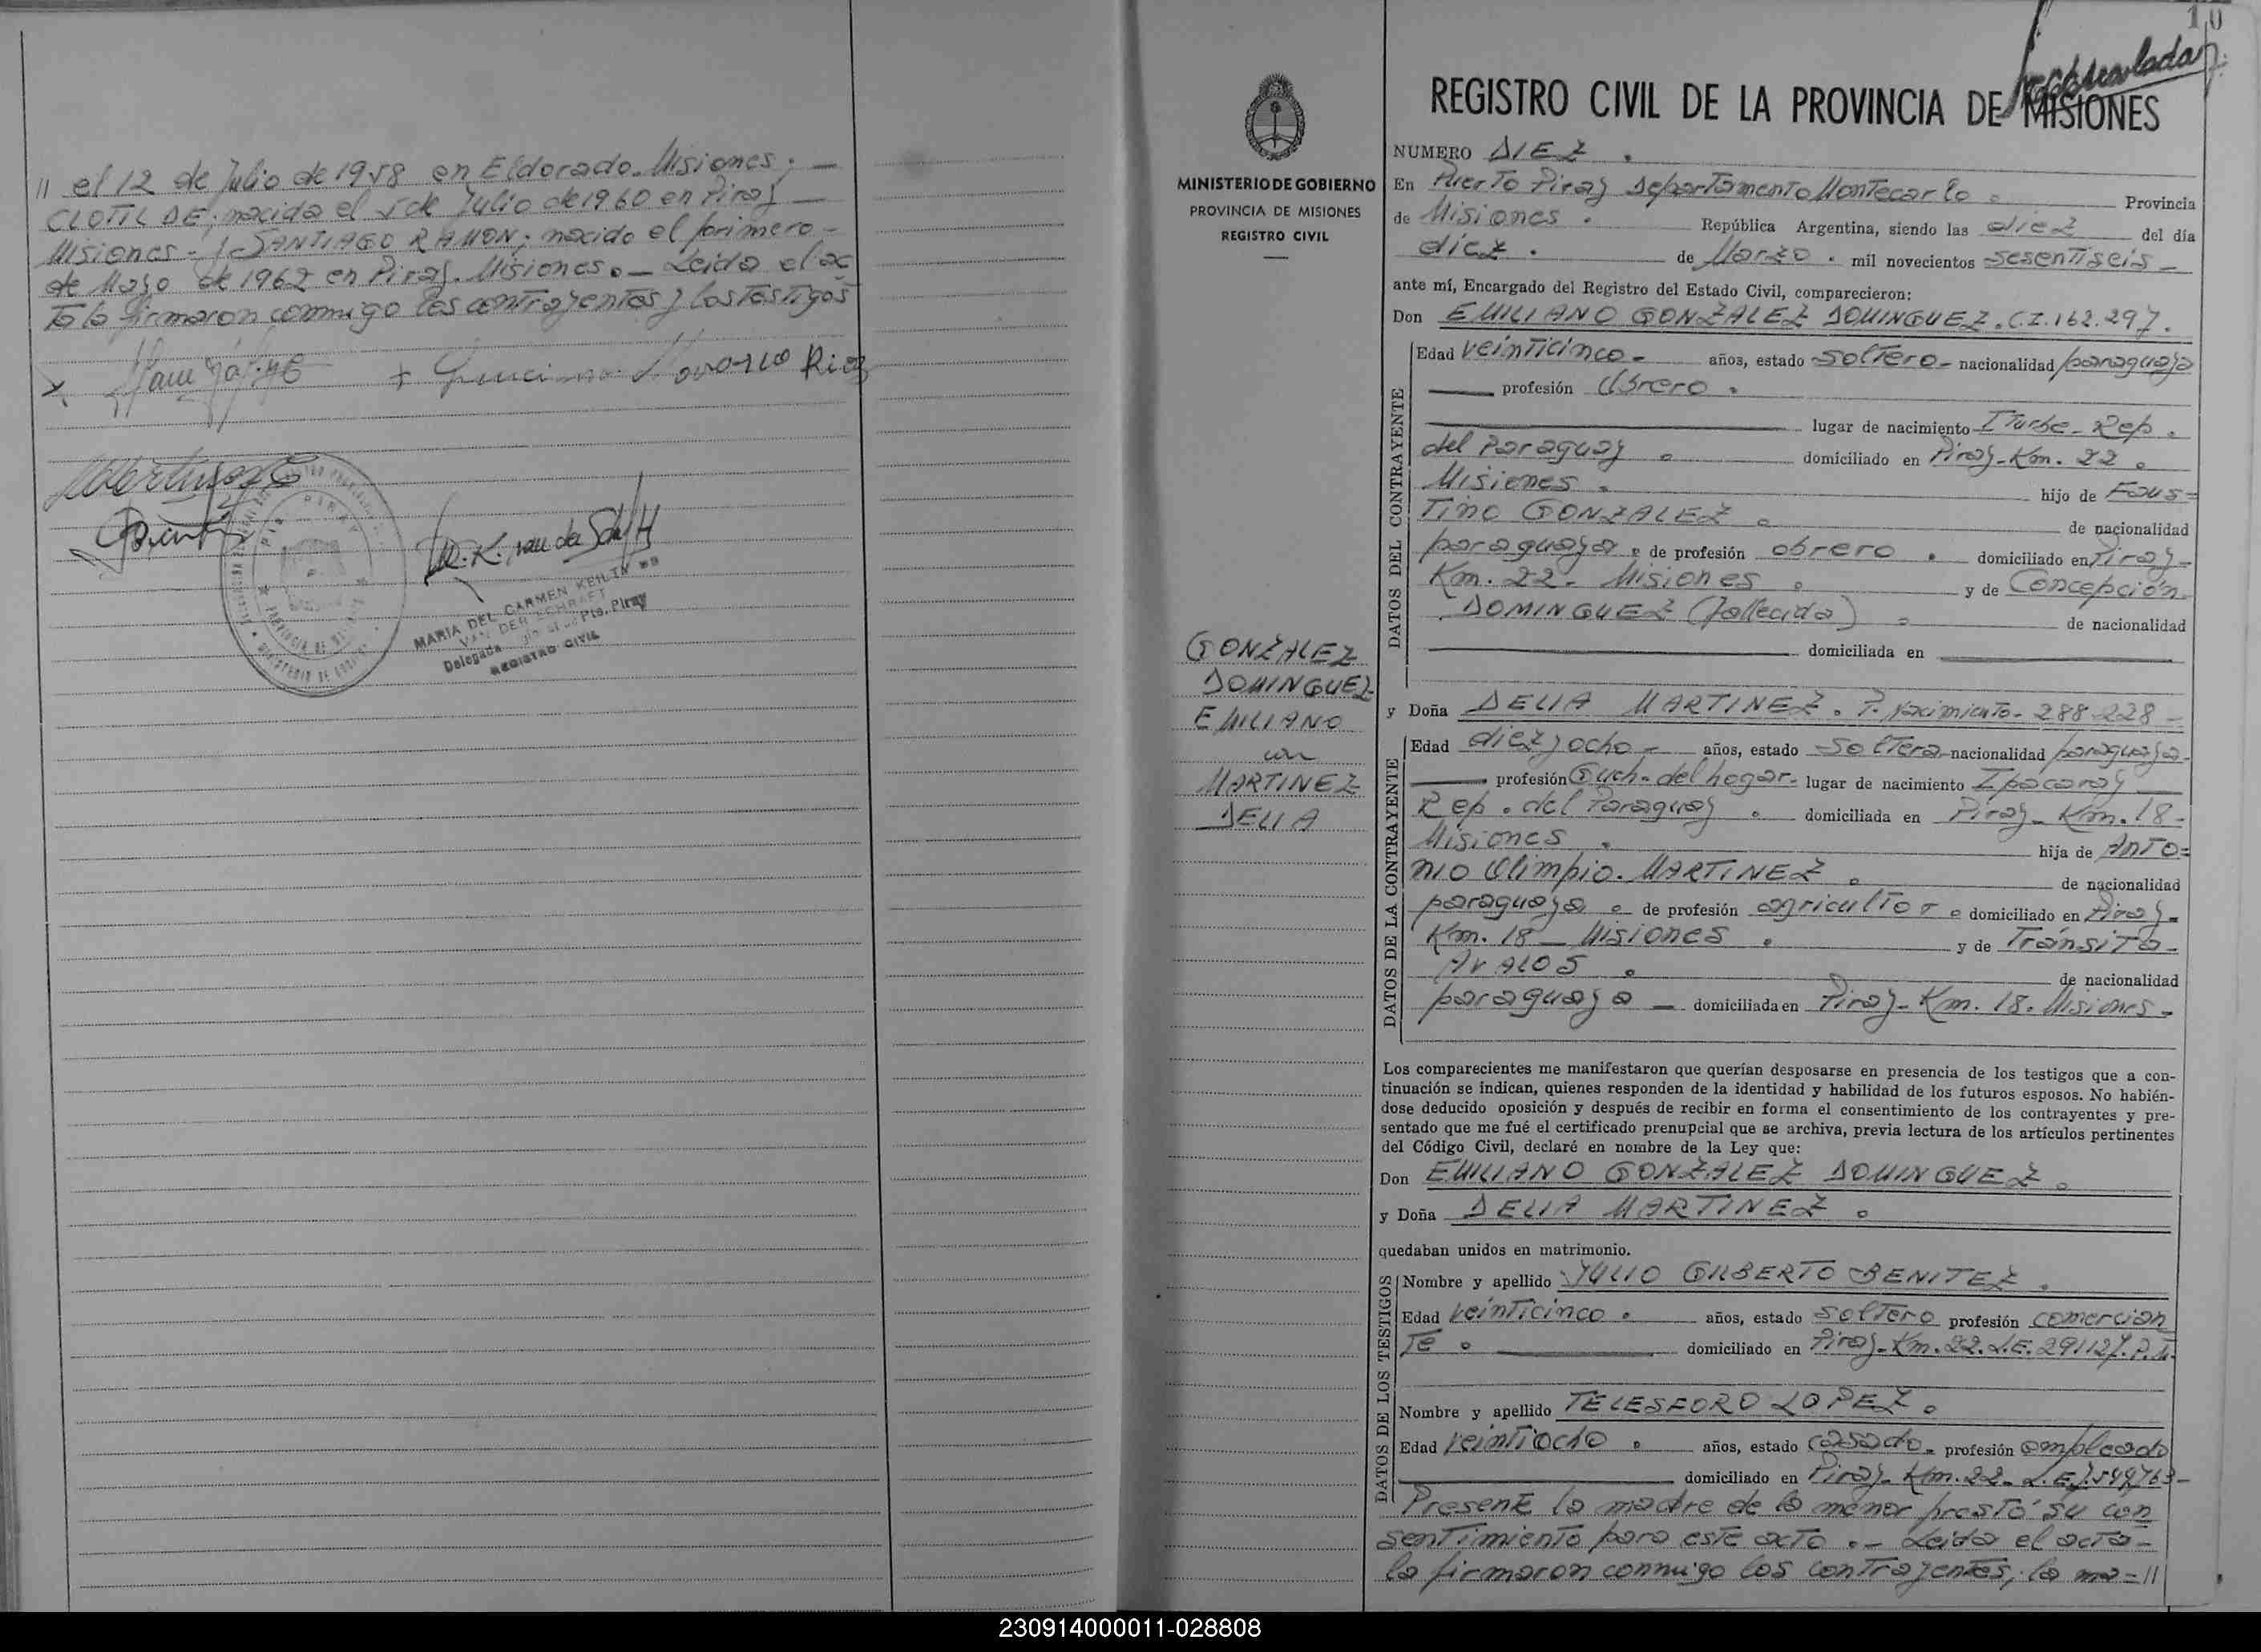 // el 12 de Julio de 1958 en Eldorado. Misiones; —
CLOTILDE; nacida el 5 de Julio de 1960 en Piray —
Misiones - y SANTIAGO RAMON; nacido el primero -
de Mayo de 1962 en Piray. Misiones. — Leida el ac
ta la firmaron conmigo los contrayentes y los testigos
MARIA DEL CARMEN KEILTY DE
VAN DER SCHRAFT
Delegada Pto. Piray
REGISTRO CIVIL
10
MINISTERIO DE GOBIERNO
PROVINCIA DE MISIONES
REGISTRO CIVIL
GONZALEZ
DOMINGUEZ
EMILIANO
con
MARTINEZ
DELIA
REGISTRO CIVIL DE LA PROVINCIA DE MISIONES
NUMERO DIEZ.
En Puerto Piray Departamento Montecarlo. Provincia
de Misiones. República Argentina, siendo las diez del día
diez. de Marzo. mil novecientos sesentiseis -
ante mí, Encargado del Registro del Estado Civil, comparecieron:
Don EMILIANO GONZALEZ DOMINGUEZ. C.I. 162.297.
DATOS DEL CONTRAYENTE
Edad veinticinco - años, estado soltero - nacionalidad paraguaya
profesión obrero.
lugar de nacimiento Iturbe - Rep.
del Paraguay. domiciliado en Piray - Km. 22.
Misiones. hijo de Faus=
tino GONZALEZ. de nacionalidad
paraguaya. de profesión obrero. domiciliado en Piray -
Km. 22. Misiones. y de Concepción
DOMINGUEZ (fallecida) de nacionalidad
domiciliada en
y Doña DELIA MARTINEZ. P. Nacimiento - 288-228 -
DATOS DE LA CONTRAYENTE
Edad diez y ocho - años, estado soltera nacionalidad paraguaya -
profesión Queh. del hogar - lugar de nacimiento Ipacaray
Rep. del Paraguay. domiciliada en Piray - Km. 18 -
Misiones. hija de Anto=
nio Olimpio. MARTINEZ. de nacionalidad
paraguaya. de profesión agricultor. domiciliado en Piray -
Km. 18 - Misiones. y de Tránsito -
AVALOS. de nacionalidad
paraguaya - domiciliada en Piray - Km. 18. Misiones -
Los comparecientes me manifestaron que querían desposarse en presencia de los testigos que a con-
tinuación se indican, quienes responden de la identidad y habilidad de los futuros esposos. No habién-
dose deducido oposición y después de recibir en forma el consentimiento de los contrayentes y pre-
sentado que me fué el certificado prenupcial que se archiva, previa lectura de los artículos pertinentes
del Código Civil, declaré en nombre de la Ley que:
Don EMILIANO GONZALEZ DOMINGUEZ.
y Doña DELIA MARTINEZ.
quedaban unidos en matrimonio.
DATOS DE LOS TESTIGOS
Nombre y apellido JULIO GILBERTO BENITEZ.
Edad veinticinco. años, estado soltero profesión comercian
te. domiciliado en Piray - Km. 22. L.E.
Nombre y apellido TELESFORO LOPEZ.
Edad veintiocho. años, estado casado - profesión empleado
domiciliado en Piray - Km. 22 - L.E.
Presente la madre de la menor prestó su con
sentimiento para este acto. - Leida el acta -
la firmaron conmigo los contrayentes, la ma= //
230914000011-028808